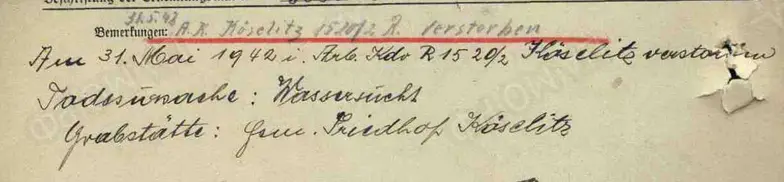 31.5.42
Bemerkungen: A.K. Köselitz 1520/2 R. verstorben
Am 31. Mai 1942 i. Arb. Kdo R 15 20/2 Köselitz verstorben
Todesursache: Wassersucht
Grabstätte: Gem. Friedhof Köselitz